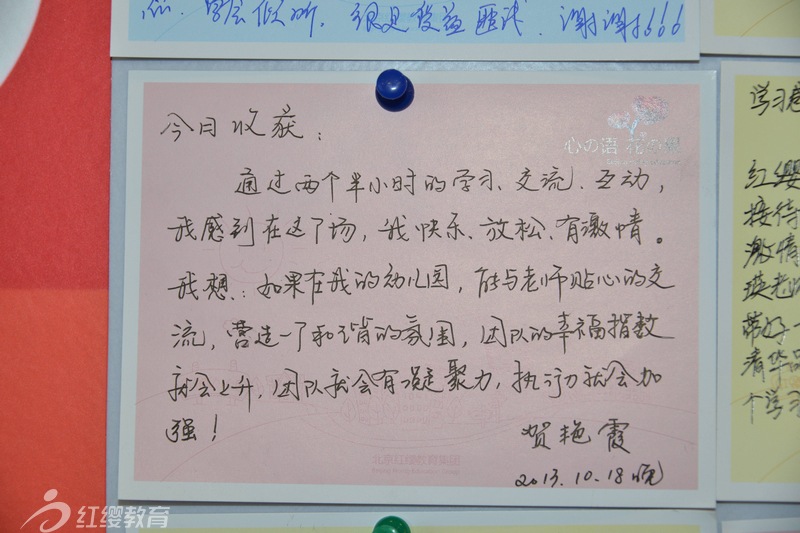 很是受益匪浅. 谢谢!!!
今日收获:
心の语 花の
通过两个半小时的学习、交流、互动,
我感到在这个场,我快乐、放松、有激情。
我想:如果在我的幼儿园,能与老师贴心的交
流,营造一个和谐的氛围,团队的幸福指数
就会上升,团队就会有凝聚力,执行力就会加
强!
贺艳霞
2013.10.18晚
北京红缨教育集团
学习
红缨
接待
激情
瑛老
带好一
清华
个学习
红缨教育